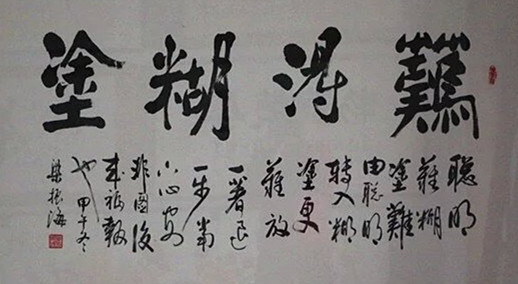 難得糊塗
聪明
難糊
塗難
由聪明
轉入糊
塗更
難放
一著退
一步當
下心安
非圖後
来福報
也甲午冬
梁振海